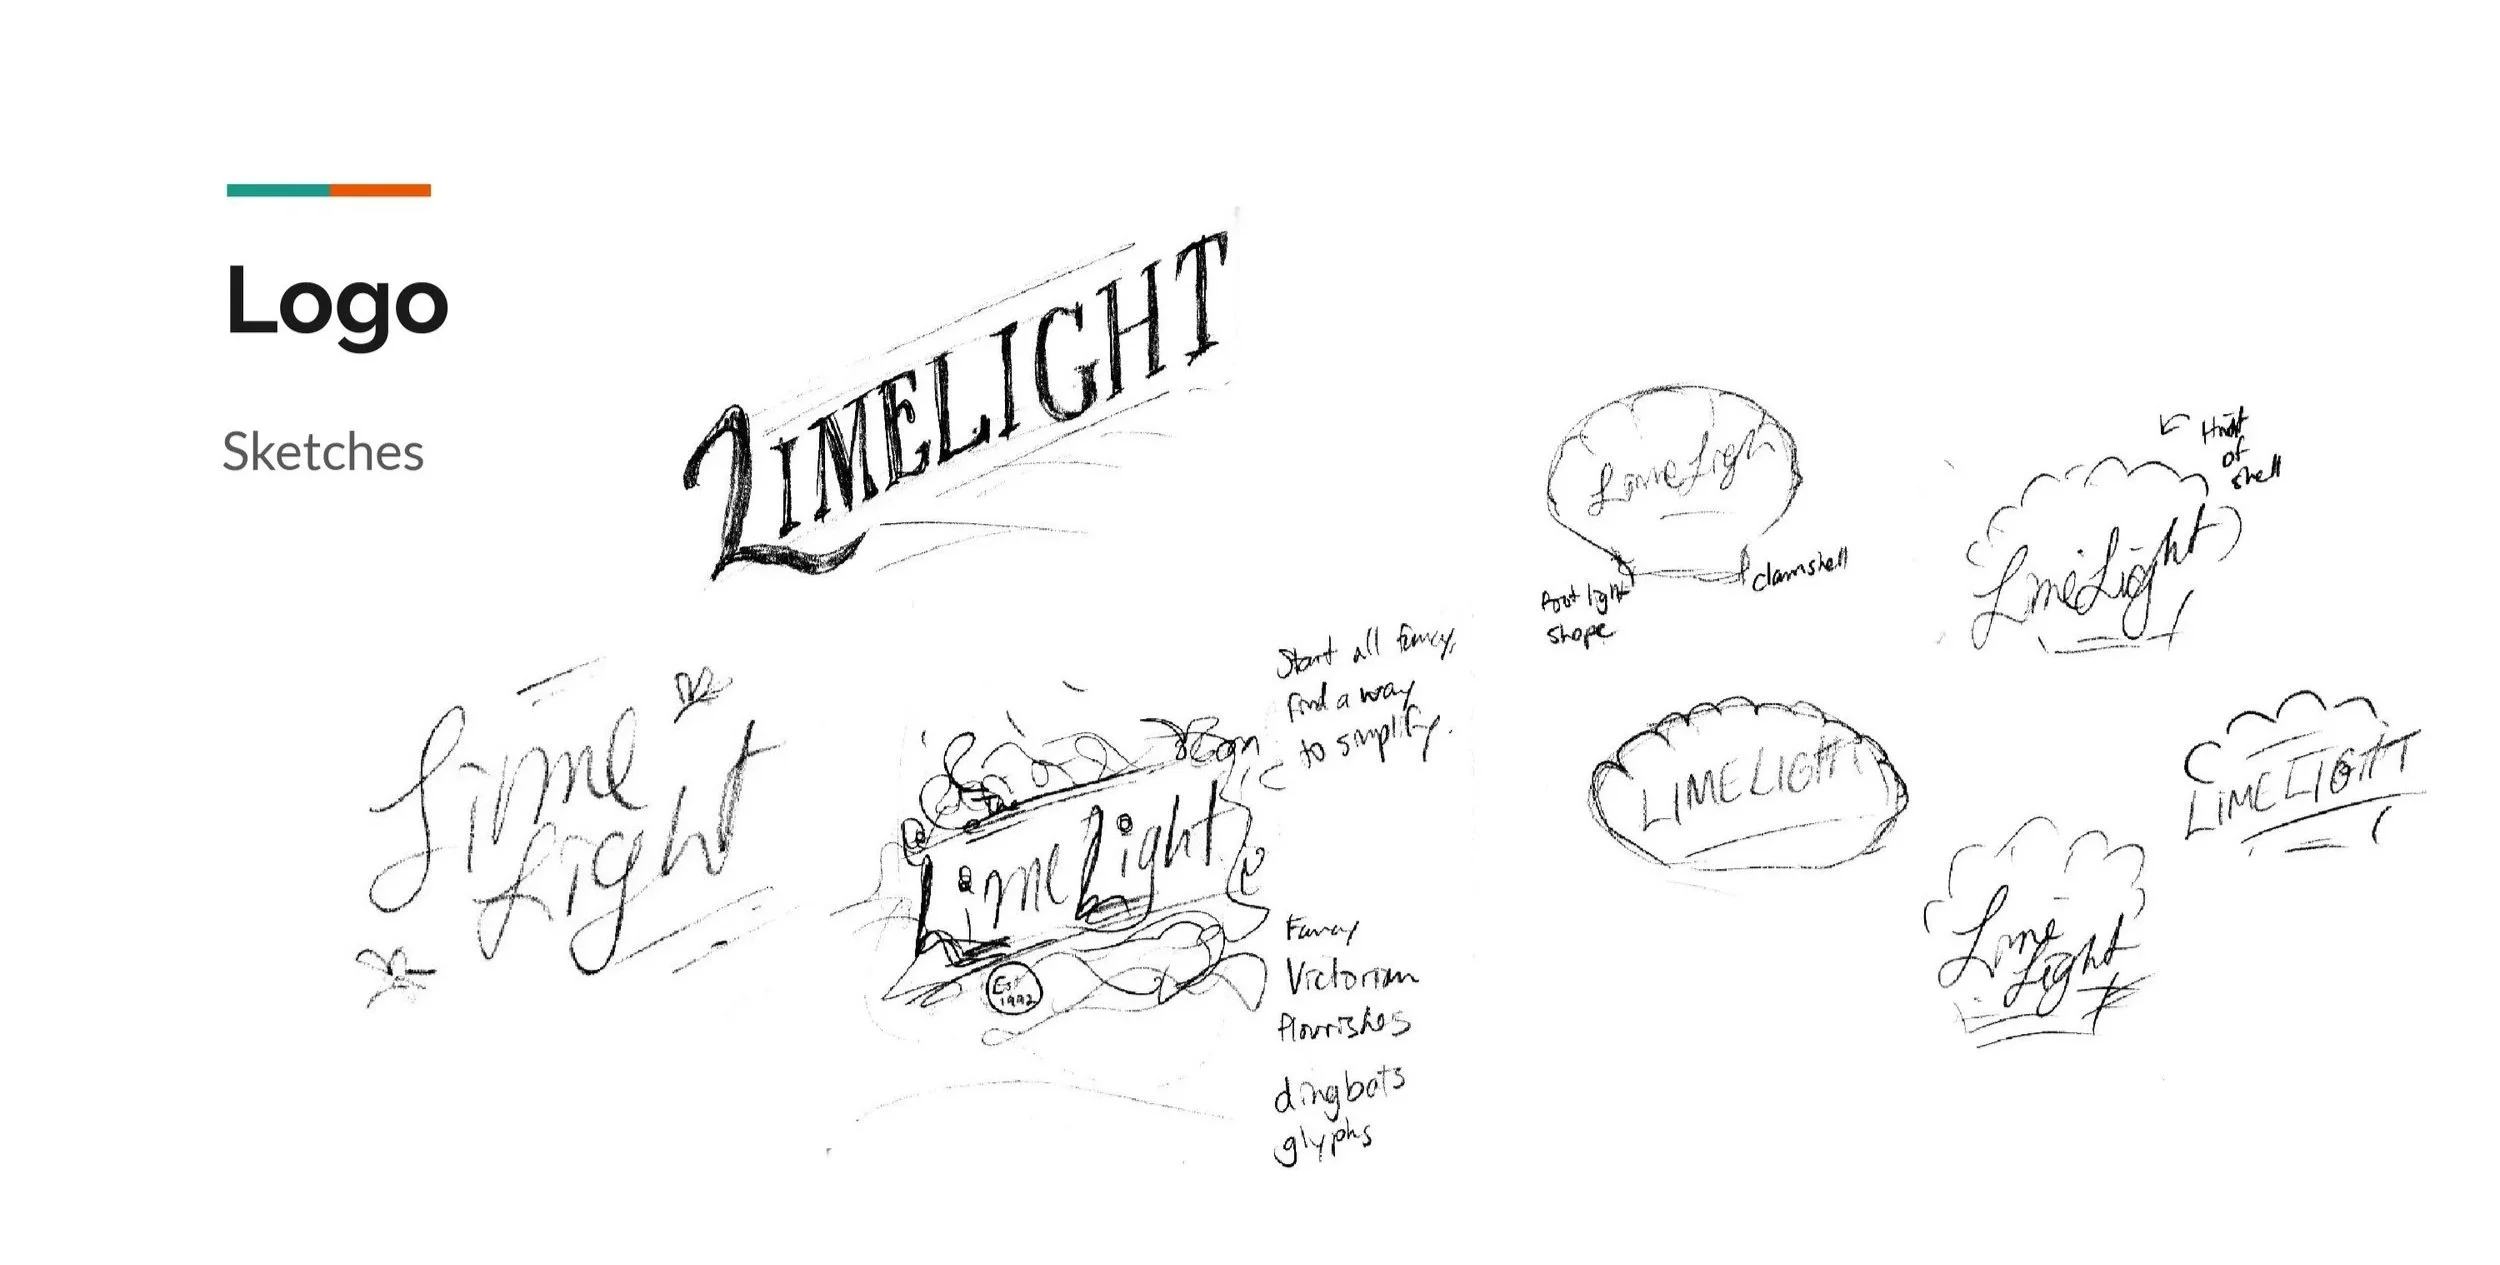 Logo
Sketches
LIMELIGHT
Lime
Light
The
LimeLight
Est
1992
Start all fancy,
find a way
to simplify.
Fancy
Victorian
flourishes
dingbats
glyphs
LimeLigh
Foot light
shape
clamshell
Hint
of
shell
LimeLight
LIMELIGHT
LIMELIGHT
Lime
Light